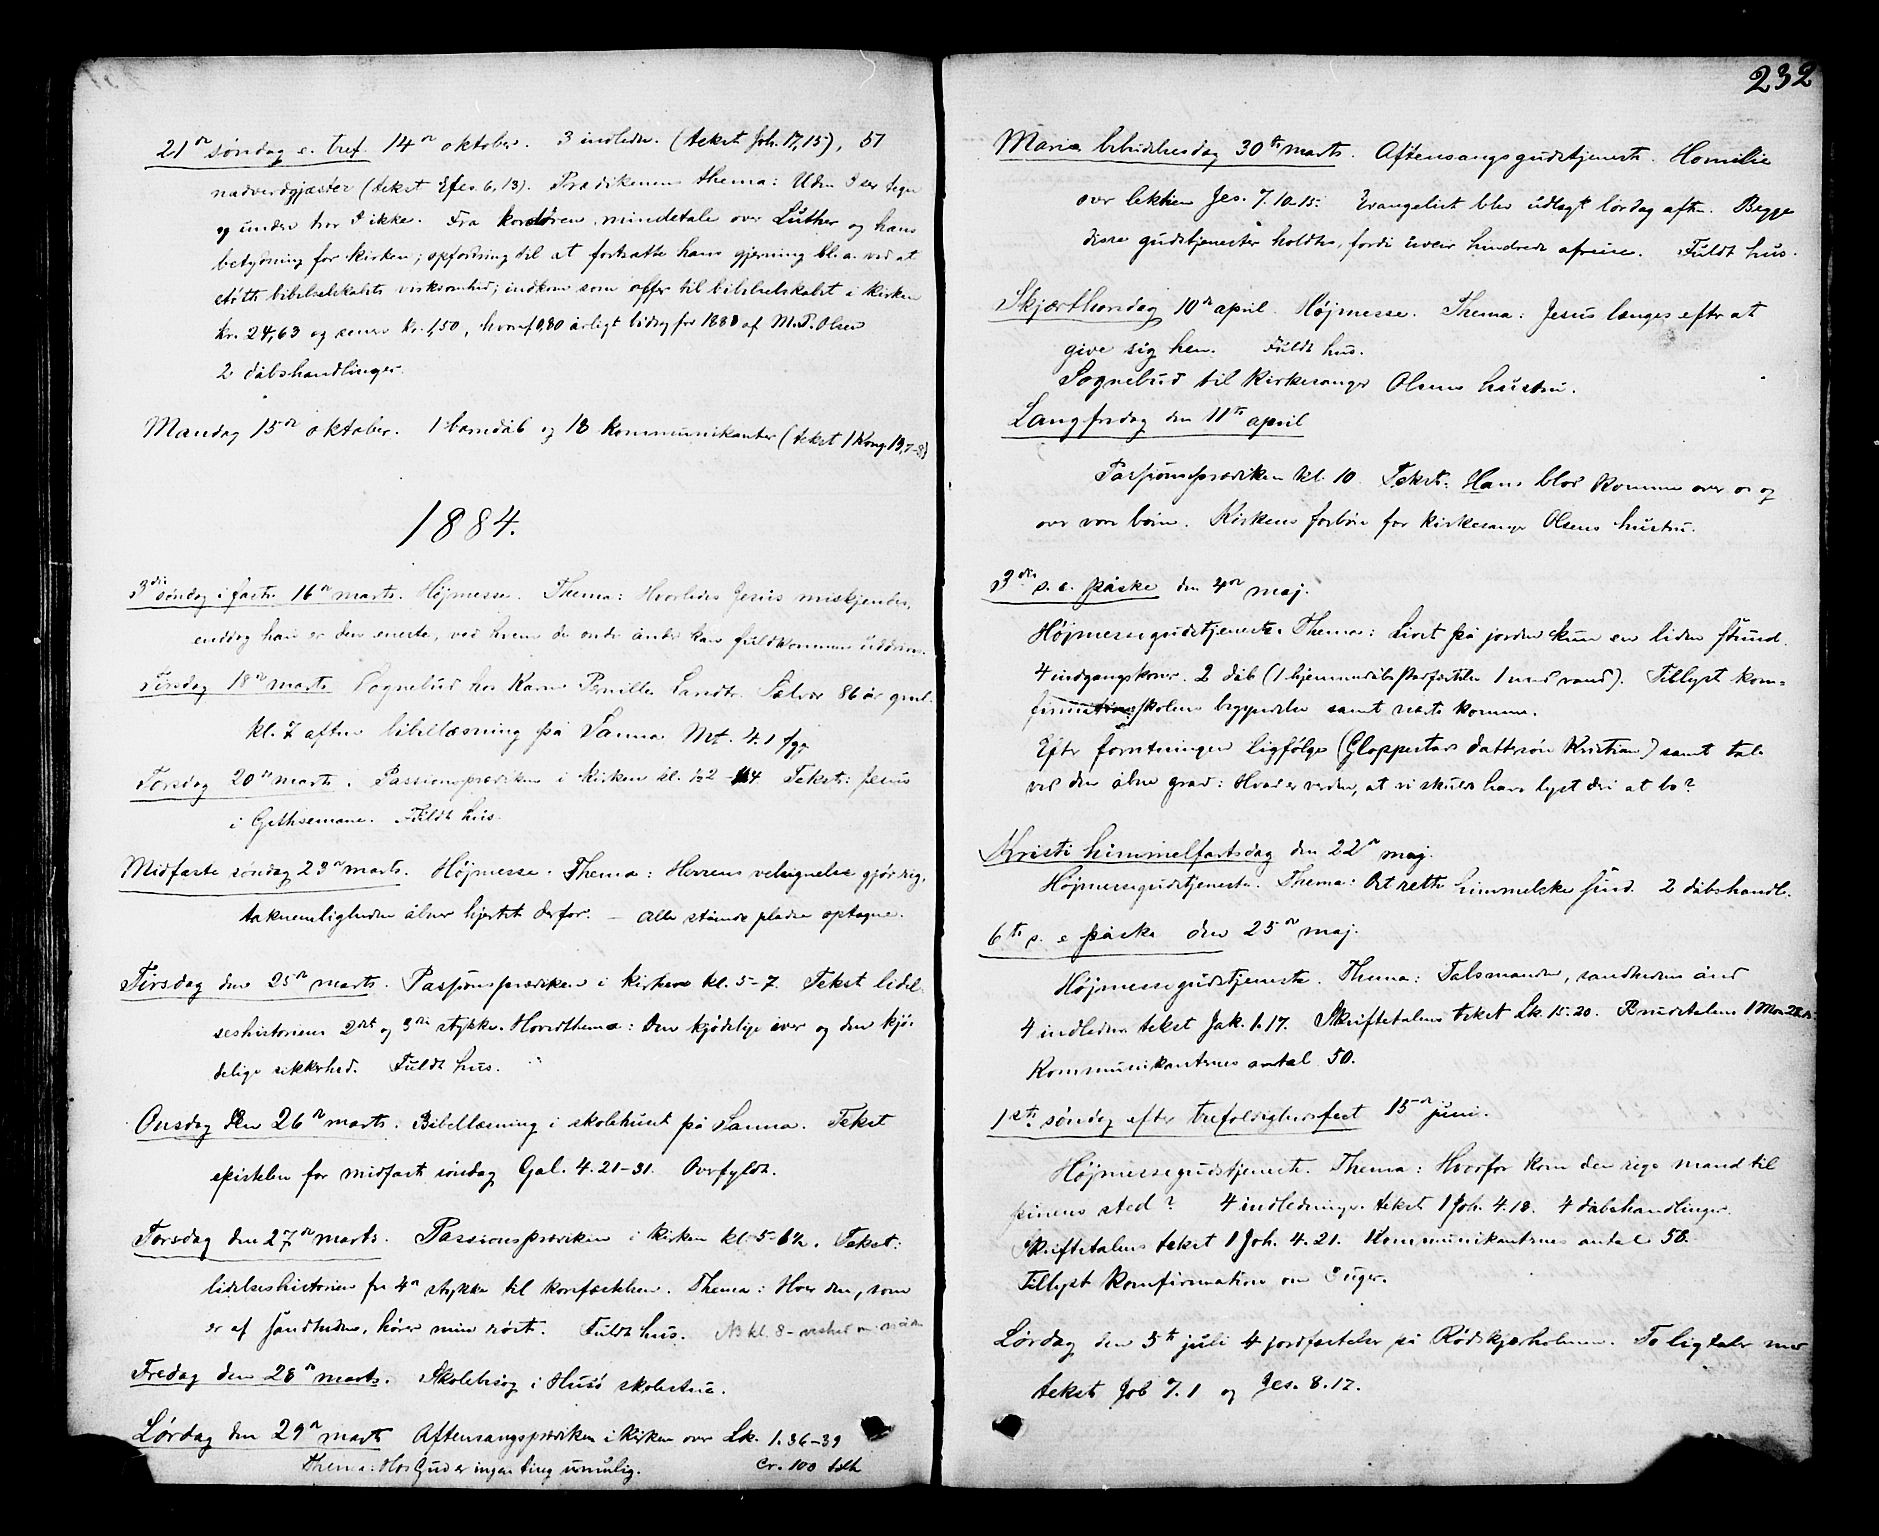 21de søndag e. tref. 14de oktober. 3 indledn. (tekst Joh. 17,15), 51
nadverdgjæster (tekst Efes. 6, 13). Prædikenens thema: Uden I ser tegn
og under tror I ikke. Fra kordøren mindetale over Luther og hans
betydning for kirken; opfordring til at fortsætte hans gjerning bl. a. ved at
støtte bibelselskabets virksomhed; indkom som offer til bibelselskabet i kirken
kr. 24,63 og senere kr. 1,50, hvoraf 0,80 årligt bidrag for 1883 af M. P. Olsen
2 dåbshandlinger.
Mandag 15de oktober. 1 barnedåb og 18 kommunikanter (tekst 1 Kong. 19,7-8)
1884.
3die søndag i faste 16de marts. Højmesse. Thema: Hvorledes Jesus miskjendes,
enddog han er den eneste, ved hvem de onde ånder kan fuldkommen uddrives.
Tirsdag 18de marts Sognebud hos Karen Pernille Sandt. Selvær 86 år gml.
kl. 7 aften bibellæsning på Sanna Mt. 4.1 fgg
Torsdag 20de marts. Passionsprædiken i kirken kl. 1/2 2 - 4 Tekst: Jesus
i Gethsemane. Fuldt hus.
Midfaste søndag 23de marts. Højmesse. Thema: Herrens velsignelse gjør rig,
taknemligheden åbner hjertet derfor. - Alle stående pladse optagne.
Tirsdag den 25de marts. Passjonsprædiken i kirken kl. 5-7. Tekst lidel-
seshistoriens 2det og 3die stykke. Hovedthema: Den kjødelige iver og den kjø-
delige sikkerhed. Fuldt hus.
Onsdag den 26de marts. Bibellæsning i skolehuset på Sanna. Tekst
epistelen for midfaste søndag Gal. 4. 21-31. Overfyldt.
Torsdag den 27de marts. Passionsprædiken i kirken kl. 5-6 1/2. Tekst:
lidelseshistorien fra 4de stykke til korsfæstelsen. Thema: Hver den, som
er af sandheden, hører min røst. Fuldt hus. NB kl. 8 -
Fredag den 28de marts. Skolebesøg i Husø skolestue.
Lørdag den 29de marts Aftensangsprædiken i kirken over Lk. 1. 36-39
Thema: Hos Gud er ingen ting umulig. Cr. 100 tilh
232
Mariæ bebudelsesdag 30te marts. Aftensangsgudstjeneste. Homilie
over lektien Jes. 7. 10-15. Evangeliet blev udlagt lørdag aften. Begge
disse gudstjenester holdtes, fordi uveir hindrede afreise. Fuldt hus.
Skjærthorsdag 10de april. Højmesse. Thema: Jesus længes efter at
give sig hen. Fuldt hus.
Sognebud til kirkesanger Olsens hustru.
Langfredag den 11te april
Passjonsprædiken kl. 10. Tekst: Hans blod komme over os og
over vore børn. Kirkens forbøn for kirkesanger Olsens hustru.
3die s. e. påske den 4de maj.
Højmessegudstjeneste. Thema: Livet på jorden kun en liden stund.
4 indgangskoner. 2 dåb (1 hjemmedåbsstadfæstelse 1 med vand). Tillyst kon-
firmationsskolens begyndelse samt næste komme.
Efter forretningen ligfølge (Gloppestads dattersøn Kristian) samt tale
ved den åbne grav: Hvad er verden, at vi skulde have lyst deri at bo?
Kristi himmelfartsdag den 22de maj.
Højmessegudstjeneste. Thema: Det rette himmelske sind. 2 dåbshandl.
6te s. e påske den 25de maj.
Højmessegudstjeneste. Thema: Talsmanden, sandhedens ånd
4 indledn. tekst Jak. 1. 17. Skriftetalens tekst Lk. 15. 20. Brudetalens 1 Mos
Kommunikanternes antal 50.
1ste søndag efter trefoldighedsfest 15de juni.
Højmessegudstjeneste. Thema: Hvorfor kom den rige mand til
pinens sted? 4 indledninger tekst 1 Joh. 4. 18. 4 dåbshandlinger.
Skriftetalens tekst 1 Joh. 4. 21. Kommunikanternes antal 58.
Tillyst konfirmation om 3 uger.
Lørdag den 5te juli 4 jordfæstelser på Rødskjærholmen. To ligtaler med
tekst Job 7. 1 og Jes. 8. 17.